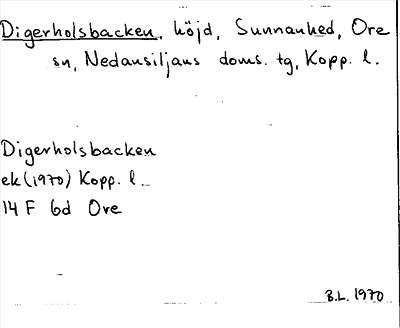 Digerholsbacken, höjd, Sunnanhed, Ore
sn, Nedansiljans doms. tg, Kopp. l.
Digerholsbacken
ek (1970) Kopp. l.
14 F 6d Ore
B.L. 1970